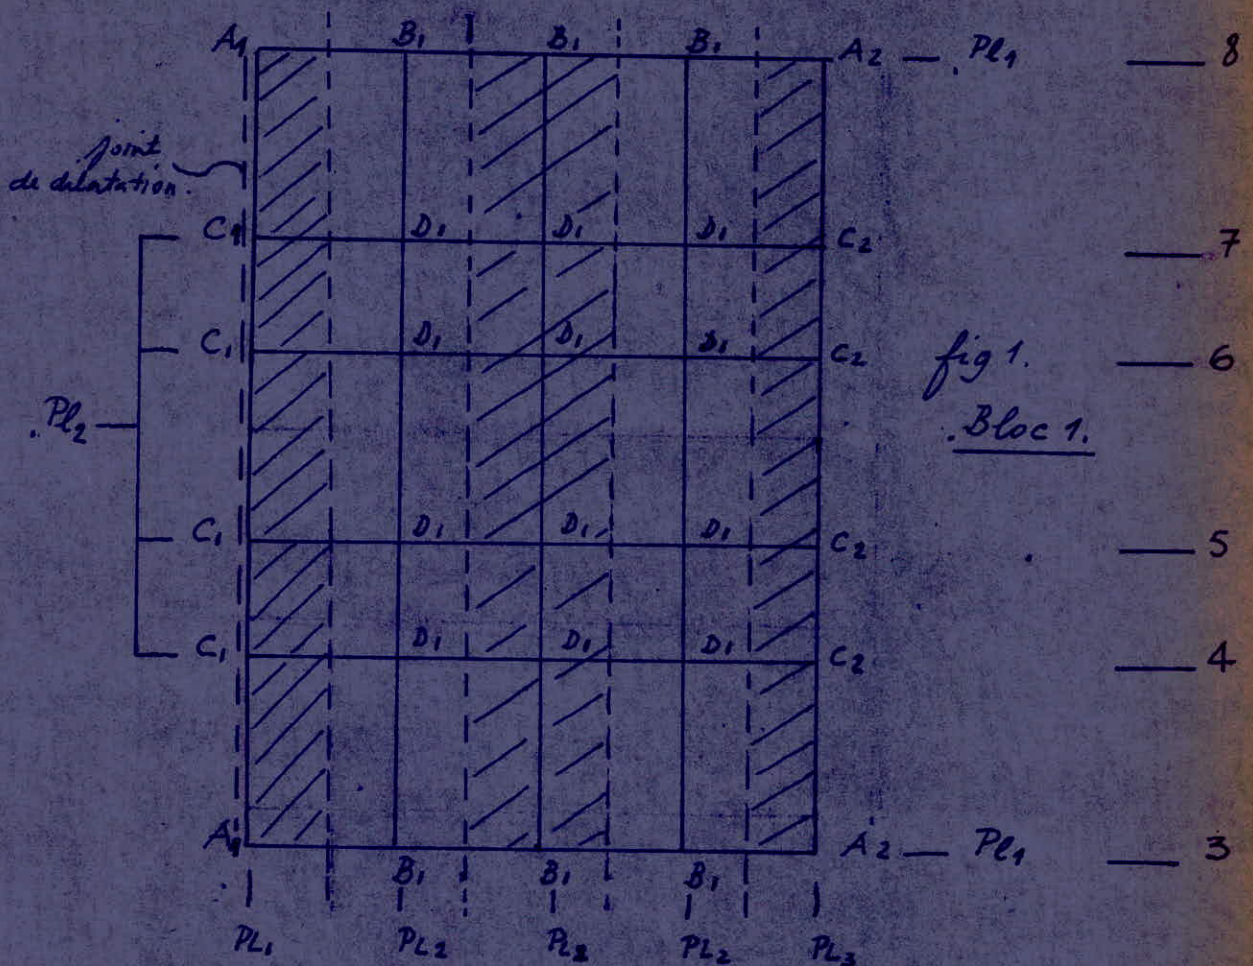 A1 B1 B1 B1 A2 — Pl1 — 8
joint
de dilatation.
C1 D1 D1 D1 C2 — 7
C1 D1 D1 D1 C2 — 6
fig 1.
Pl2
Bloc 1.
C1 D1 D1 D1 C2 — 5
C1 D1 D1 D1 C2 — 4
A1 A2 — Pl1 — 3
B1 B1 B1
PL1 PL2 PL2 PL2 PL3